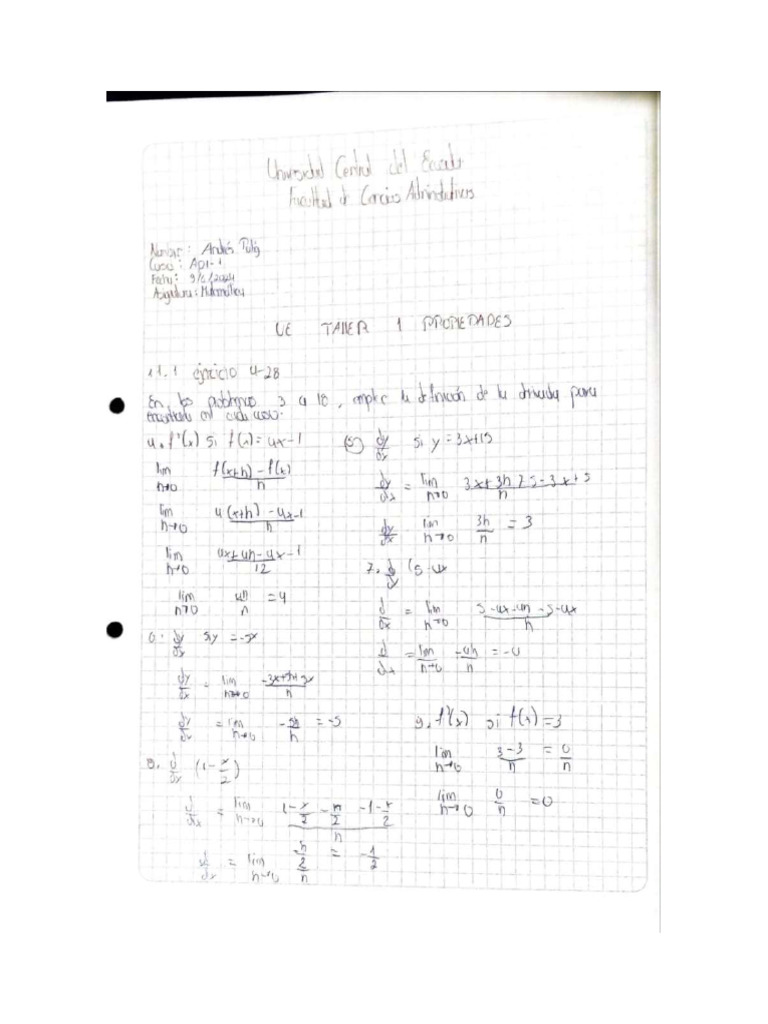 Universidad Central del Ecuador
Facultad de Ciencias Administrativas
Nombre: Andrés
Curso: Ap1-1
Fecha: 9/6/2024
Asignatura: Matemática
UE TALLER 1 PROPIEDADES
11.1 ejercicio 4-28
En los problemas 3 a 18, emplee la definición de la derivada para
encontrarla en cada caso.
4. f'(x) si f(x) = 4x-1
lim h→0 f(x+h) - f(x) / h
lim h→0 4(x+h) - 4x-1 / h
lim h→0 4x+4h-4x-1 / 12
lim h→0 4h / h = 4
(5) dy/dx si y = 3x+15
dy/dx = lim h→0 3x+3h+5-3x+5 / h
dy/dx lim h→0 3h / h = 3
6. dy/dx si y = -5x
dy/dx = lim h→0
dy/dx = lim h→0 -5h / h = -5
7. d/dx (5-4x
d/dx = lim h→0 5-4x-4h-5-4x / h
d/dx = lim h→0 -4h / h = -0
8. d/dx (1 - x/2)
d/dx = lim h→0 1 - x/2 - h/2 - 1 - x/2 / h
d/dx = lim h→0 -h/2 / h = -1/2
9. f'(x) si f(x) = 3
lim h→0 3-3 / h = 0/h
lim h→0 0/h = 0